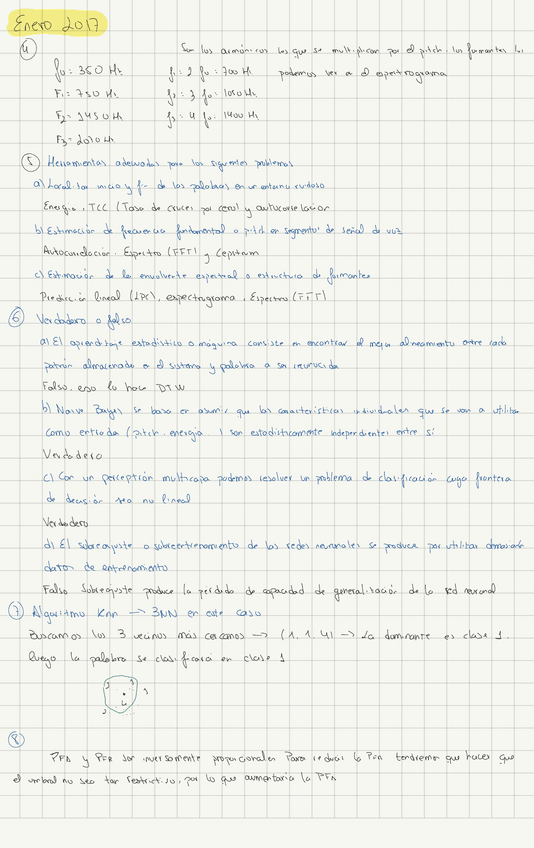 Enero 2017
4
Son los armónicos los que se multiplican por el pitch. los formantes los
f0: 350 Hz f1: 2 f0: 700 Hz podemos ver en el espectrograma
F1 = 750 Hz f2: 3 f0: 1050 Hz
F2 = 1450 Hz f3: 4 f0: 1400 Hz
F3 = 2010 Hz
5 Herramientas adecuadas para los siguientes problemas
a) Localizar inicio y fin de las palabras en un entorno ruidoso
Energía, TCC (Tasa de cruces por cero) y autocorrelación
b) Estimación de frecuencia fundamental o pitch en segmentos de señal de voz
Autocorrelación. Espectro (FFT) y Cepstrum
c) Estimación de la envolvente espectral o estructura de formantes
Predicción lineal (LPC), espectrograma, Espectro (FFT)
6 Verdadero o falso
a) El aprendizaje estadístico o máquina consiste en encontrar el mejor alineamiento entre cada
patrón almacenado en el sistema y palabra a ser reconocida
Falso, eso lo hace DTW
b) Naive Bayes se basa en asumir que las características individuales que se van a utilizar
como entrada (pitch, energía...) son estadísticamente independientes entre sí
Verdadero
c) Con un perceptrón multicapa podemos resolver un problema de clasificación cuya frontera
de decisión sea no lineal
Verdadero
d) El sobreajuste o sobreentrenamiento de las redes neuronales se produce por utilizar demasiados
datos de entrenamiento
Falso Sobreajuste produce la perdida de capacidad de generalización de la red neuronal
7 Algoritmo Knn → 3NN en este caso
Buscamos los 3 vecinos más cercanos → (1, 1, 4) → La dominante es clase 1.
luego la palabra se clasificará en clase 1
8
PFA y PFR son inversamente proporcionales Para reducir la tendremos que hacer que
el umbral no sea tan restrictivo, por lo que aumentaría la PFA